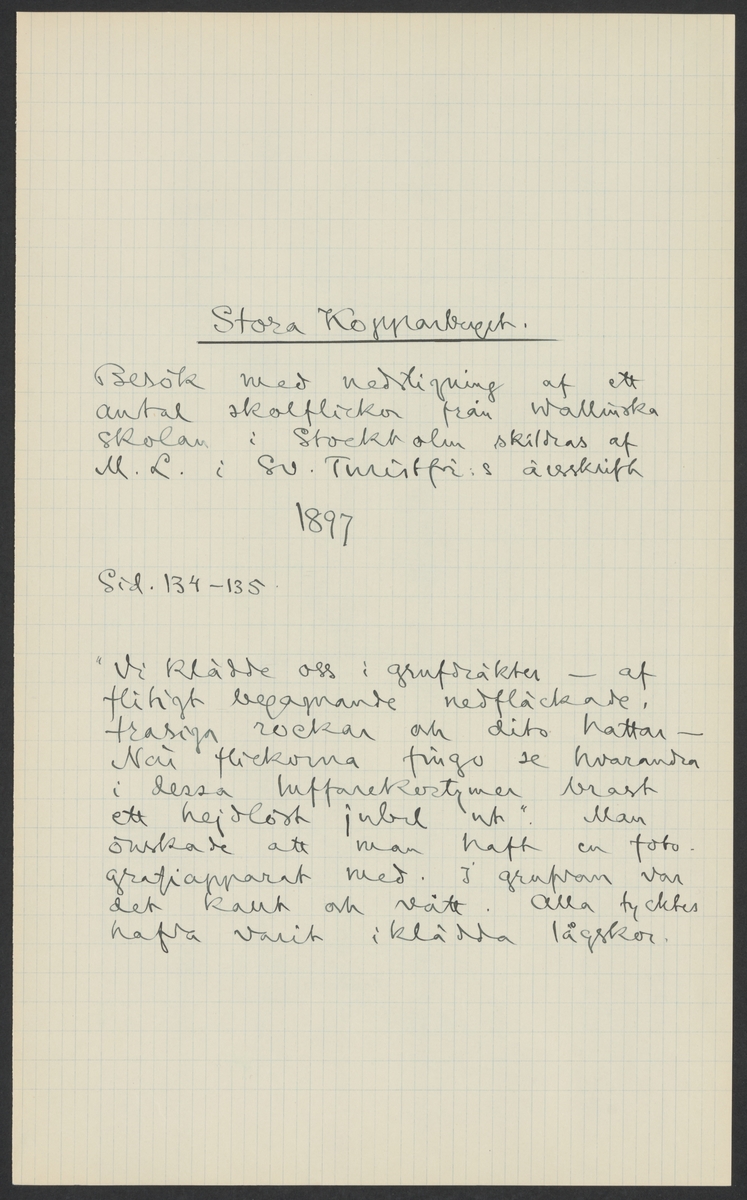 Stora Kopparberget.
Besök med nedstigning af ett
antal skolflickor från Wallinska
skolan i Stockholm skildras af
M. L. i Sv. Turistför:s årsskrift
1897
Sid. 134–135.
"Vi klädde oss i grufdräkter — af
flitigt begagnande nedfläckade,
trasiga rockar och dito hattar —
När flickorna fingo se hvarandra
i dessa luffarekostymer brast
ett hejdlöst jubel ut". Man
önskade att man haft en foto-
grafiapparat med. I grufvan var
det kallt och vått. Alla tycktes
hafva varit iklädda lågskor.